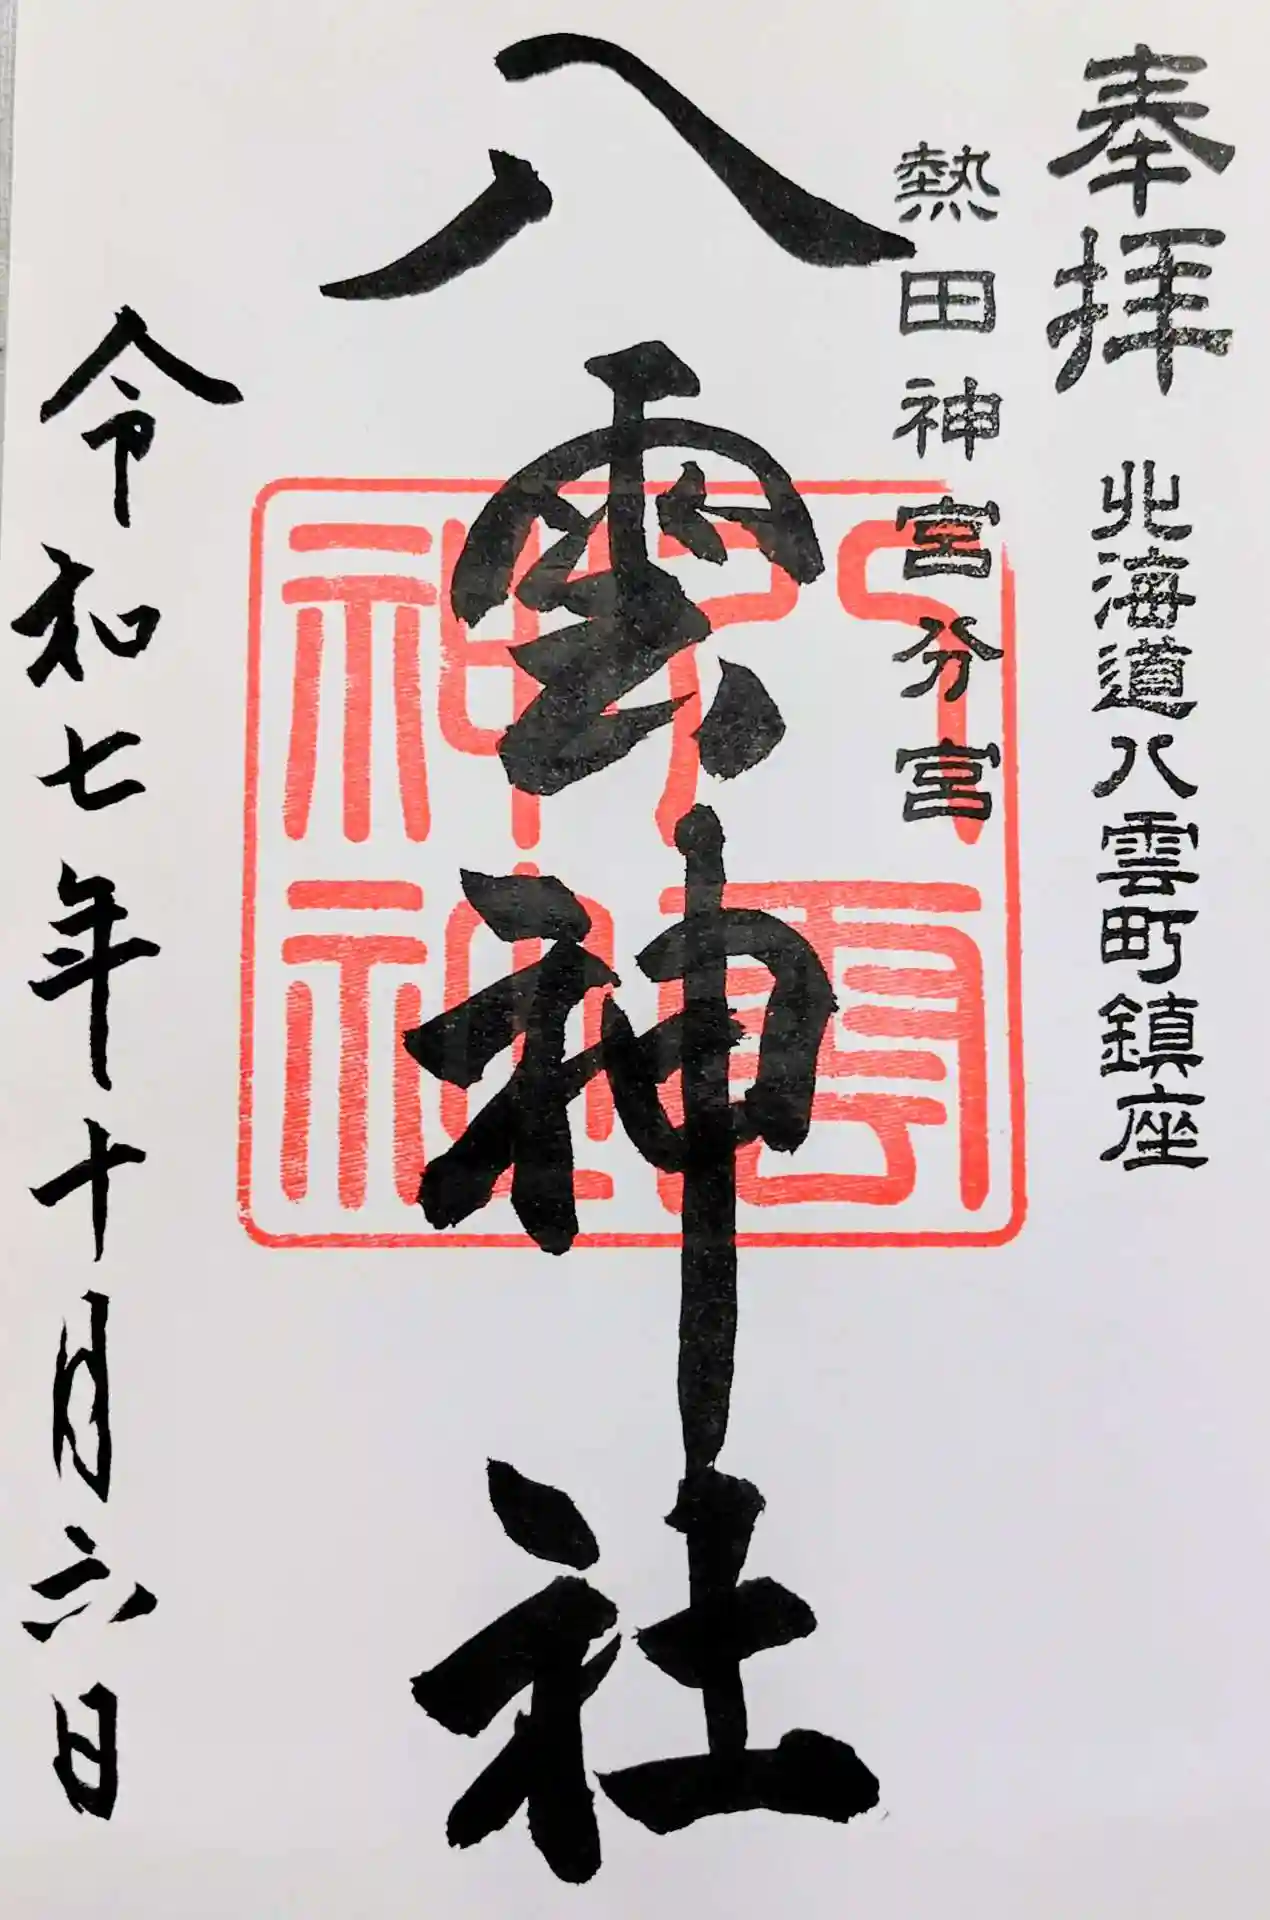 奉拝
北海道八雲町鎮座
熱田神宮分宮
八雲神社
八雲神社
令和七年十月六日